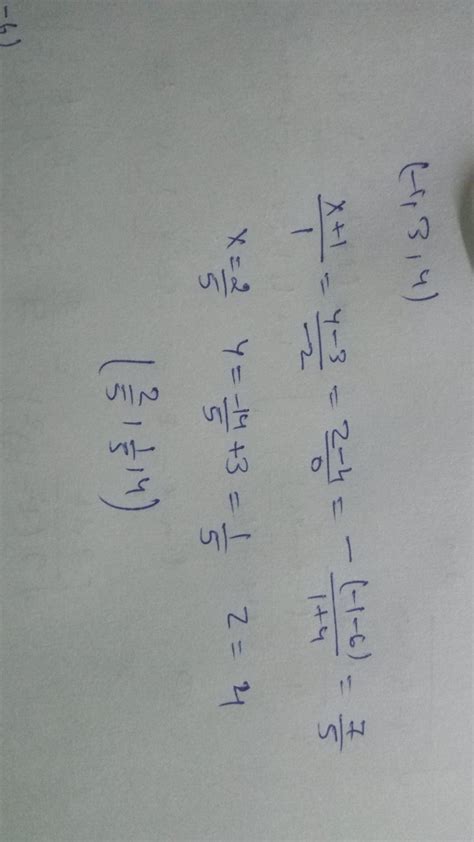 (-1, 3, 4)
x+1/1 = y-3/-2 = z-4/0 = -(-1-6)/1+4 = 7/5
x = 2/5 y = -14/5 + 3 = 1/5 z = 4
(2/5, 1/5, 4)
-6)